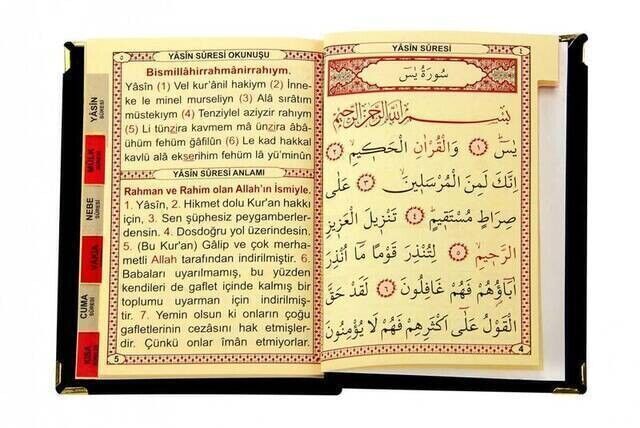 ٥
YÂSİN SÛRESİ OKUNUŞU
Bismillâhirrahmânirrahıym.
Yâsîn (1) Vel kur'ânil hakiym (2) İnne-
ke le minel murseliyn (3) Alâ sırâtım
müstekıym (4) Tenziylel aziyzir rahiym
(5) Li tünzira kavmem mâ ünzira âbâ-
ühüm fehüm ğâfilûn (6) Le kad hakkal
kavlü alâ ekserihim fehüm lâ yü'minûn
YÂSİN SÛRESİ ANLAMI
Rahman ve Rahim olan Allah'ın İsmiyle.
1. Yâsîn, 2. Hikmet dolu Kur'an hakkı
için, 3. Sen şüphesiz peygamberler-
densin. 4. Dosdoğru yol üzerindesin.
5. (Bu Kur'an) Gâlip ve çok merha-
metli Allah tarafından indirilmiştir. 6.
Babaları uyarılmamış, bu yüzden
kendileri de gaflet içinde kalmış bir
toplumu uyarman için indirilmiş-
tir. 7. Yemin olsun ki onların çoğu
gafletlerinin cezasını hak etmişler-
dir. Çünkü onlar îmân etmiyorlar.
5
YÂSİN SÛRESİ
٤
سُورَةُ يٰسٓ
بِسْمِ اللّٰهِ الرَّحْمٰنِ الرَّحِيمِ
يٰسٓ ١ وَالْقُرْاٰنِ الْحَكِيمِ ٢
اِنَّكَ لَمِنَ الْمُرْسَلِينَ ٣ عَلٰى
صِرَاطٍ مُسْتَقِيمٍ ٤ تَنْزِيلَ الْعَزِيزِ
الرَّحِيمِ ٥ لِتُنْذِرَ قَوْمًا مَا اُنْذِرَ
اٰبَاؤُهُمْ فَهُمْ غَافِلُونَ ٦ لَقَدْ حَقَّ
الْقَوْلُ عَلٰى اَكْثَرِهِمْ فَهُمْ لَا يُؤْمِنُونَ
4
YÂSİN
SÛRESİ
MÜLK
SÛRESİ
NEBE
SÛRESİ
VAKIA
CUMA
SÛRESİ
KISA